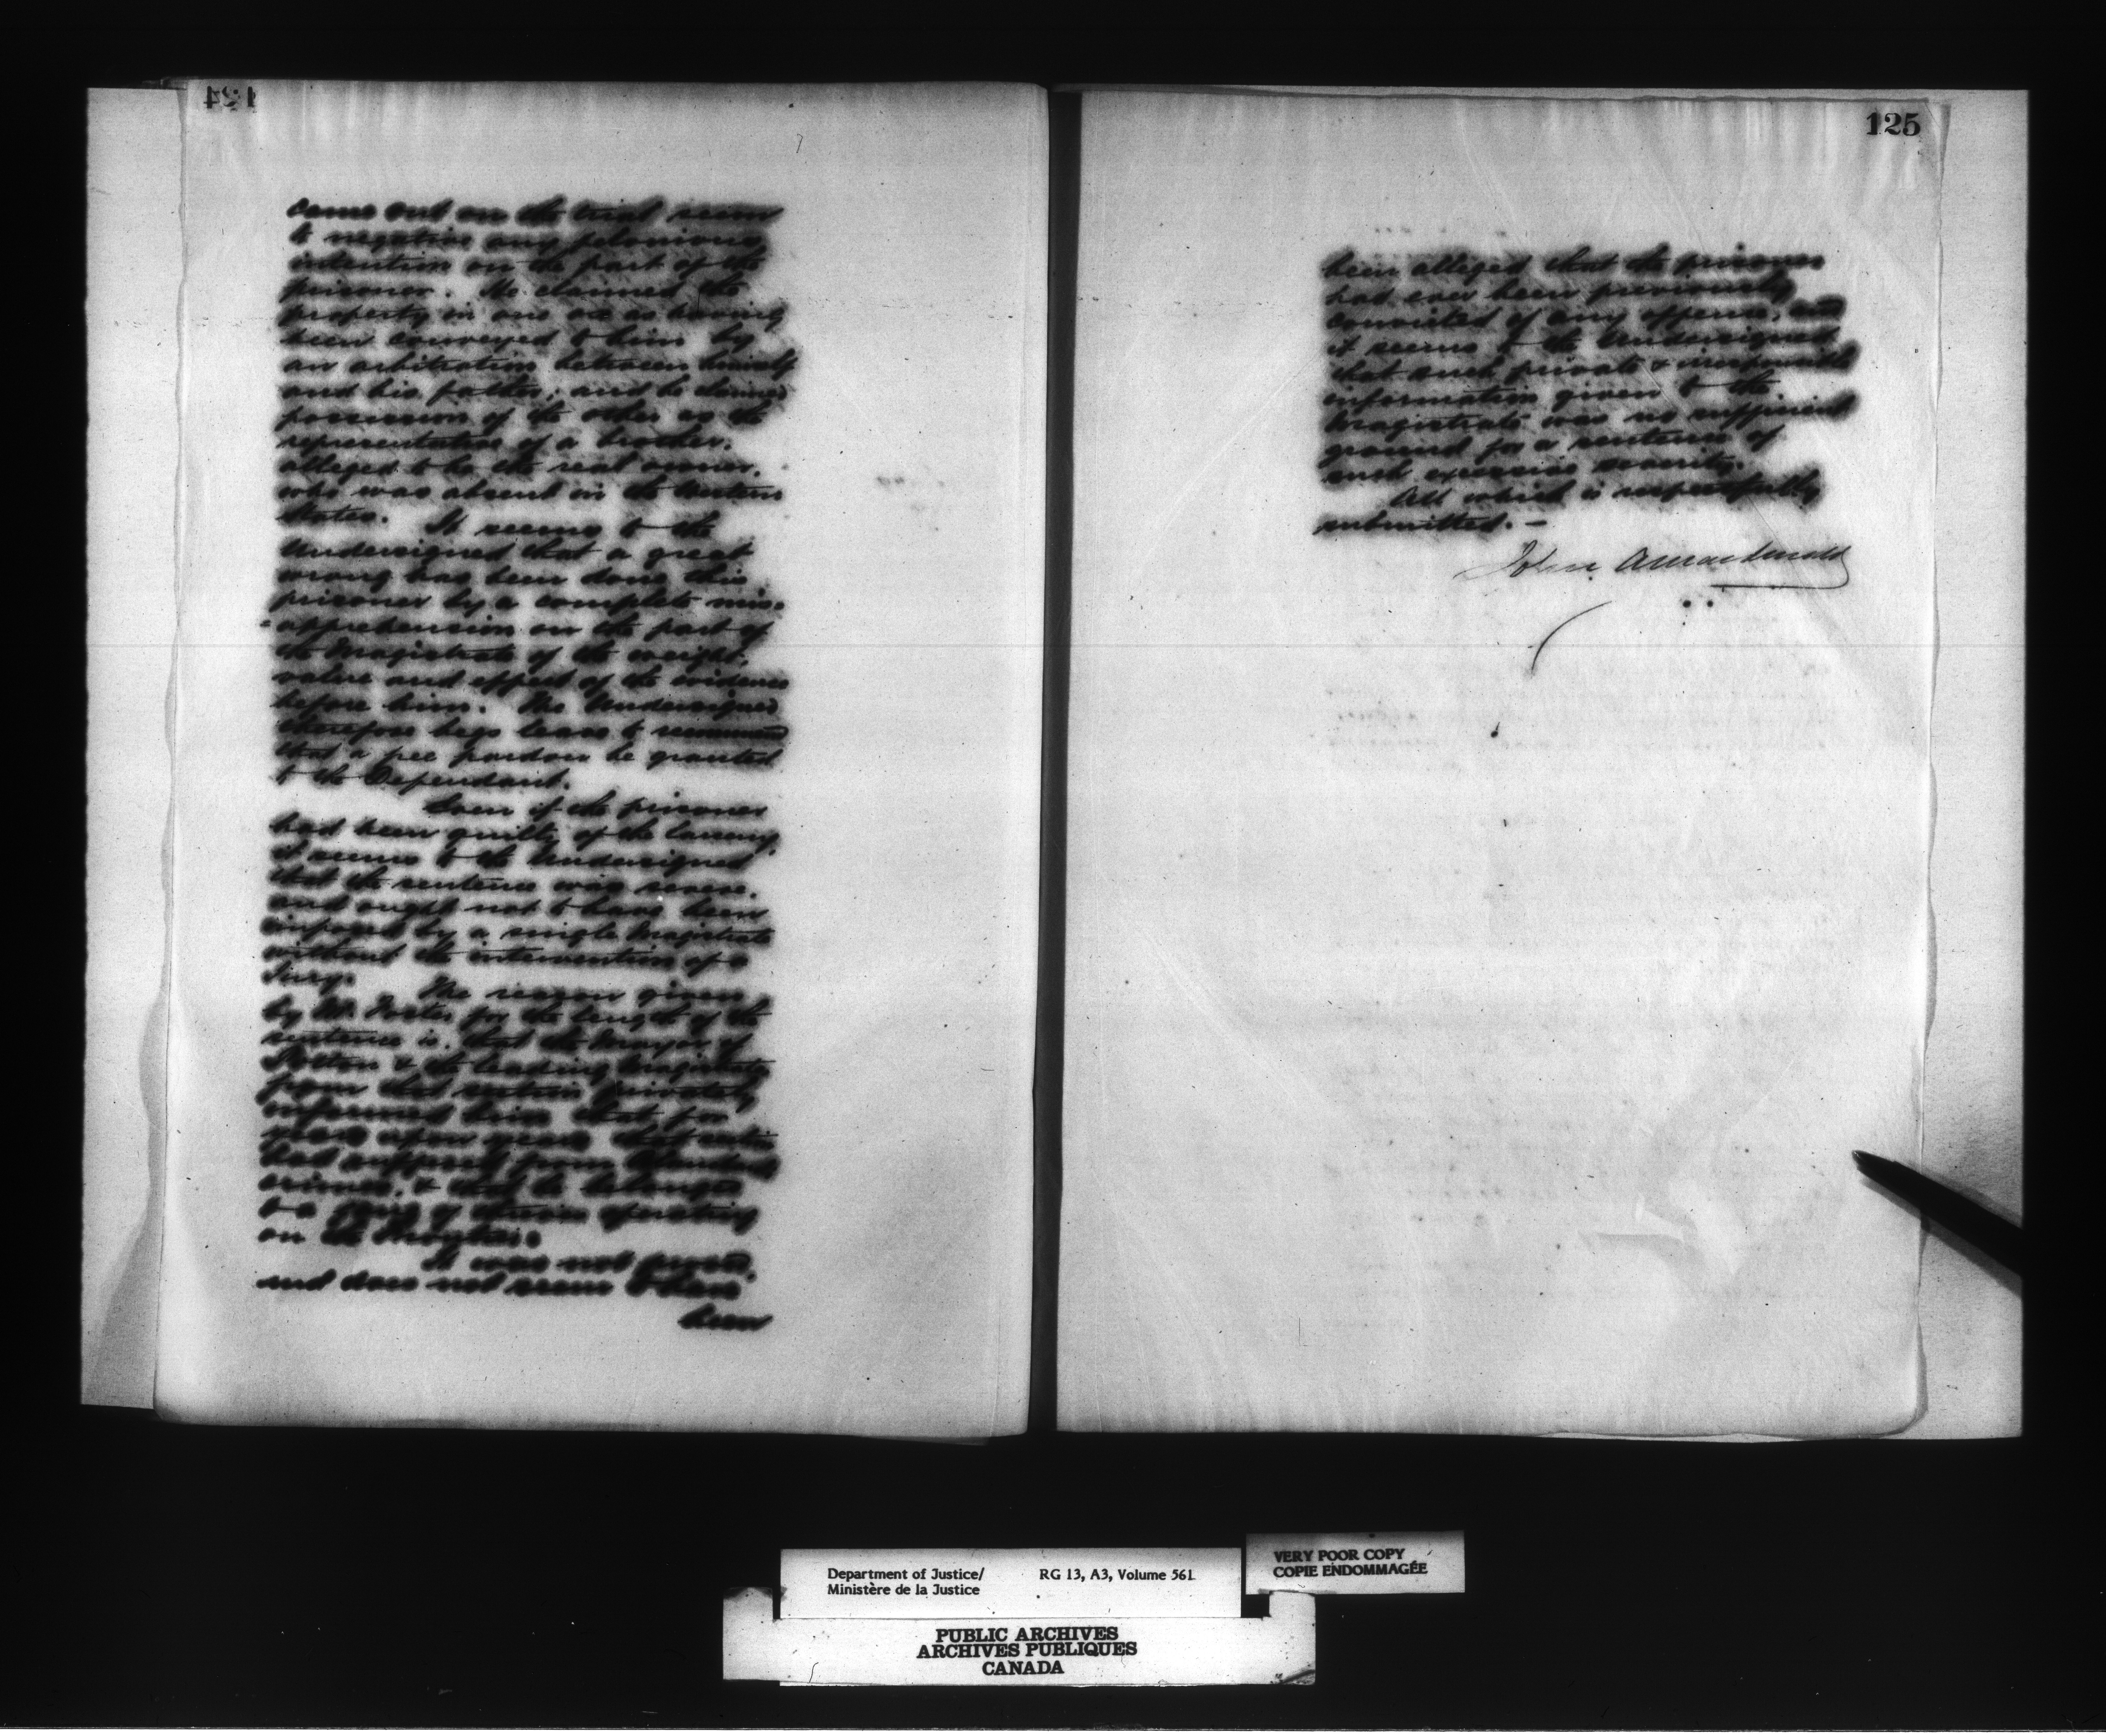 124
came out on the trial seem
to negative any felonious
intention on the part of the
prisoner. He claimed the
property in one as having
been conveyed to him by
an arbitration between himself
and his father, and he claimed
possession of the other as the
representative of a brother,
alleged to be the real owner,
who was absent in the Western
States. It seems to the
Undersigned that a great
wrong has been done this
prisoner by a complete mis=
=apprehension on the part of
the Magistrate of the weight,
value and effect of the evidence
before him. The Undersigned
therefore begs leave to recommend
that a free pardon be granted
to the Defendant.
Even if the prisoner
had been guilty of the larceny,
it seems to the Undersigned
that the sentence was severe,
and ought not to have been
imposed by a single Magistrate
without the intervention of a
Jury. The reason given
by Mr. for the length of the
sentence is, that the Mayor of
Potton & the leading Magistrate
from that section privately
informed him that for
years upon years that section
had suffered from
crimes, & that he belonged
to a gang of operating
on the frontier.
It was not proved,
and does not seem to have
been
125
been alleged that the prisoner
had ever been previously
convicted of any offence, and
it seems to the Undersigned
that such private & irresponsible
information given to the
Magistrate was no sufficient
ground for a sentence of
such excessive severity.
All which is respectfully
submitted. —
John A Macdonald
Department of Justice/ RG 13, A3, Volume 561
Ministère de la Justice
VERY POOR COPY
COPIE ENDOMMAGÉE
PUBLIC ARCHIVES
ARCHIVES PUBLIQUES
CANADA